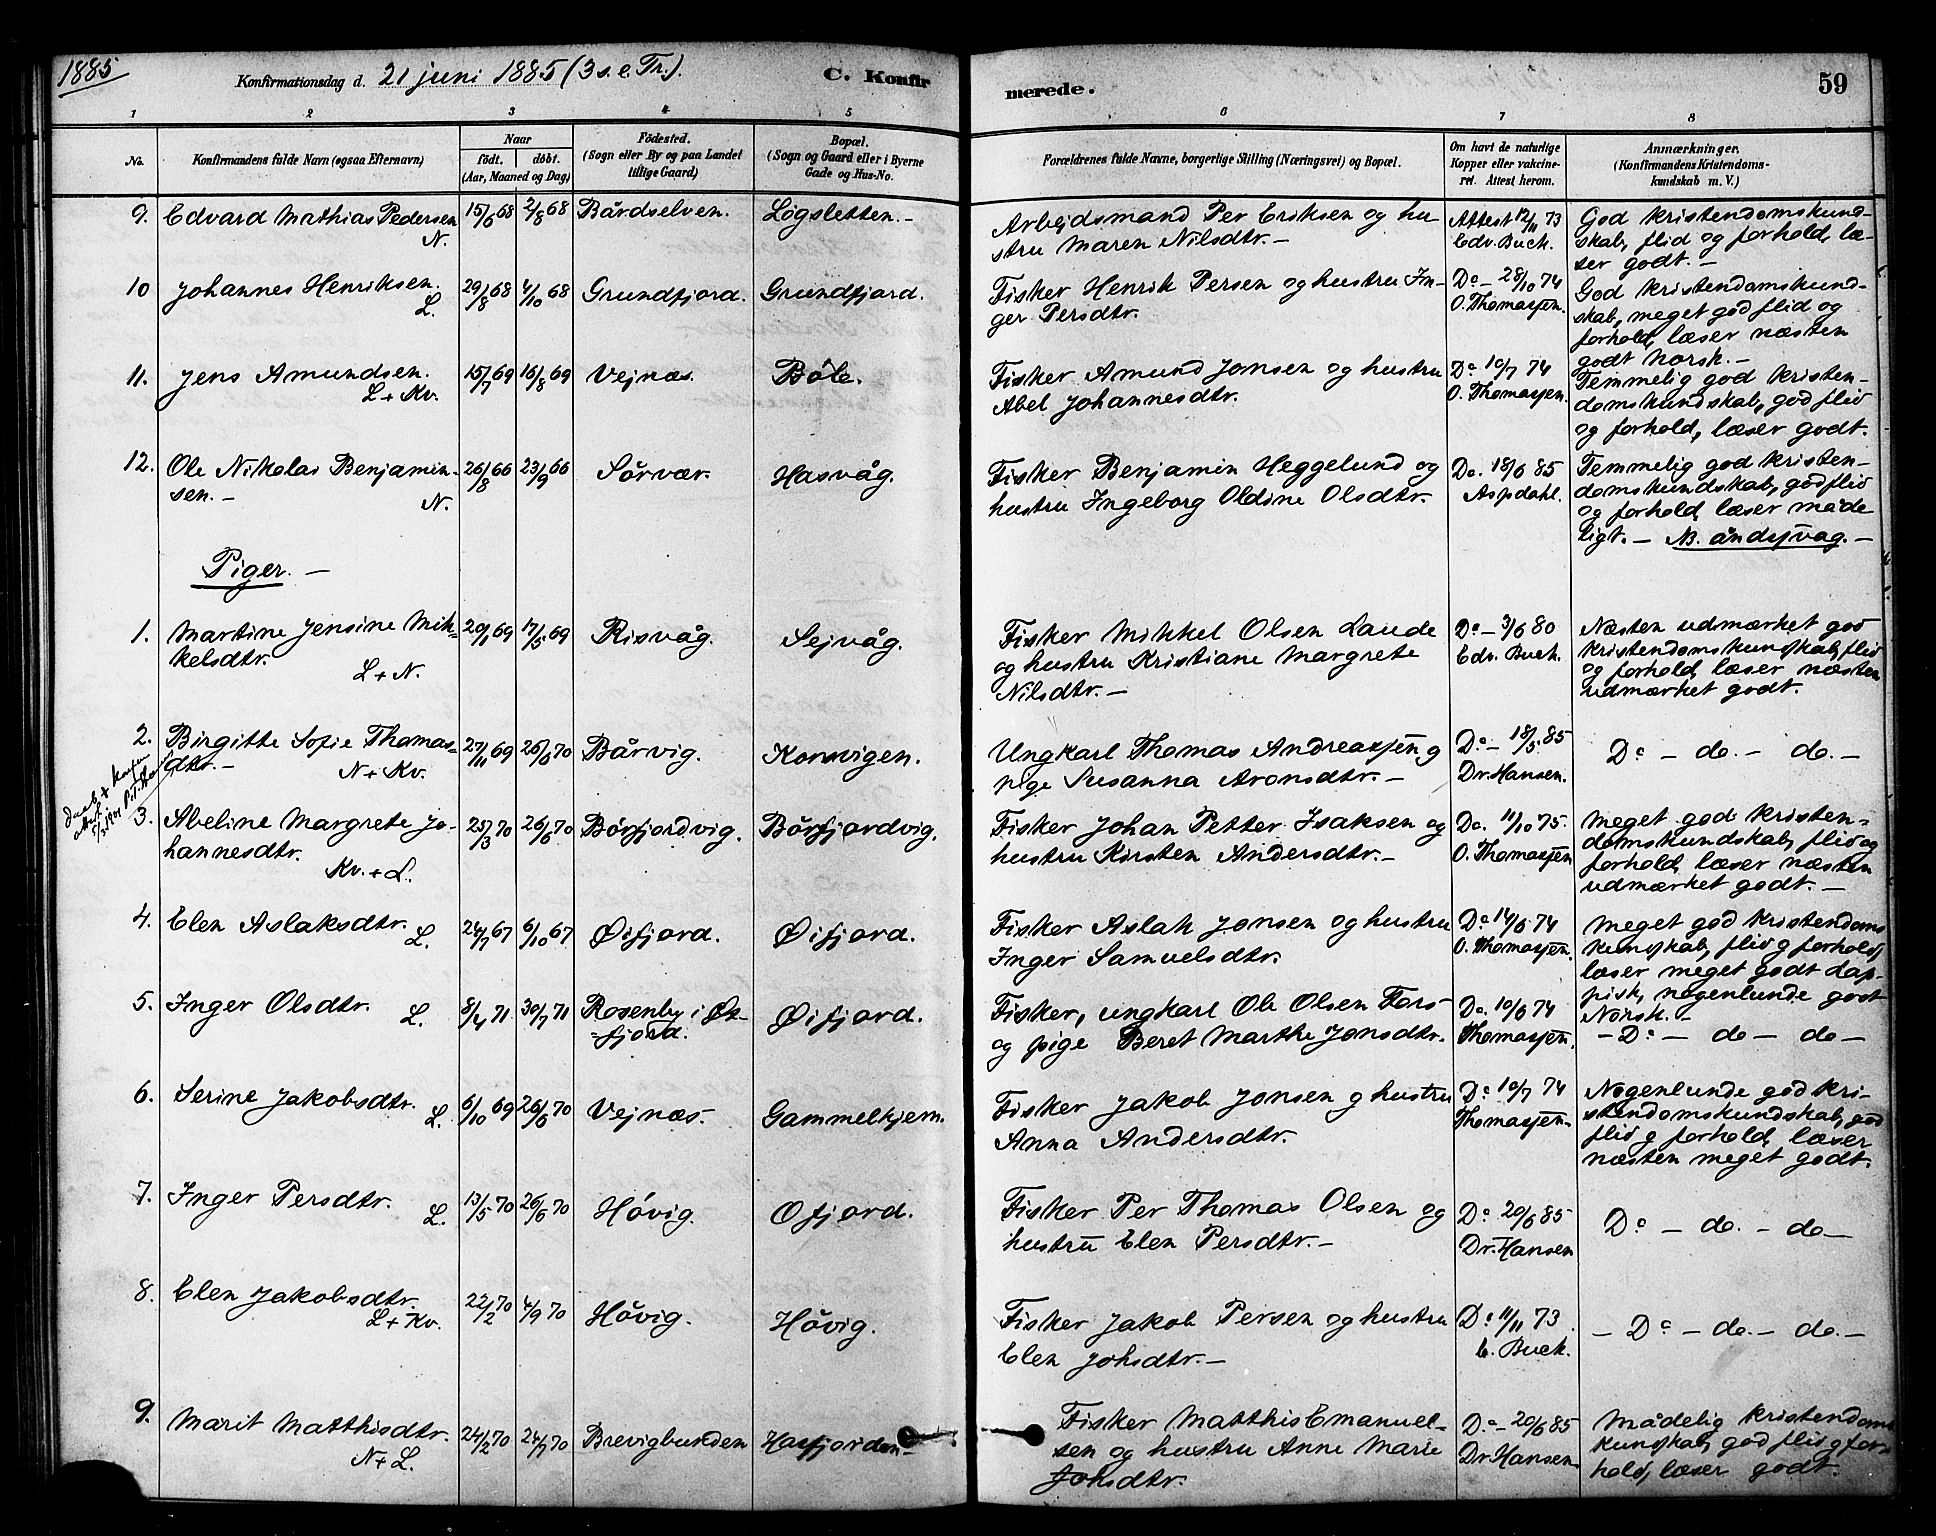 1885
Konfirmationsdag d. 21 juni 1885 (3 s. e. Tr.).
C. Konfirmerede.
59
1 2 3 4 5 6 7 8
No.
Konfirmandens fulde Navn (ogsaa Efternavn)
Naar
födt. döbt.
(Aar, Maaned og Dag)
Födested.
(Sogn eller By og paa Landet
tillige Gaard)
Bopæl.
(Sogn og Gaard eller i Byerne
Gade og Hus-No.
Forældrenes fulde Navne, borgerlige Stilling (Næringsvei) og Bopæl.
Om havt de naturlige
Kopper eller vakcine-
ret. Attest herom.
Anmærkninger,
(Konfirmandens Kristendoms-
kundskab m. V.)
9. Edvard Mathias Pedersen 15/6 68 2/8 68 Bårdselven. Løgsletten.-
N.
Arbejdsmand Per Eriksen og hu-
stru Maren Nilsdtr.-
Attest 12/11 73
Edv. Buck.
God kristendomskund-
skab, flid og forhold, læ-
ser godt.-
10 Johannes Henriksen. 29/8 68 4/10 68 Grundfjord. Grundfjord.
L.
Fisker Henrik Persen og hustru In-
ger Persdtr.
Do - 28/10 74
O. Thomasjen.
God kristendomskund-
skab, meget god flid og
forhold, læser næsten
godt norsk.-
11. Jens Amundsen. 15/7 69 16/8 69 Vejnæs. Bøle.
L + Kv.
Fisker Amund Jonsen og hustru
Abel Johannesdtr.
Do 10/7 74
O. Thomasjen.
Temmelig god kristen-
domskundskab, god flid
og forhold, læser godt.
12. Ole Nikolai Benjamin- 26/8 66 23/9 66 Sørvær. Hasvåg.
sen.-
N.
Fisker Benjamin Heggelund og
hustru Ingeborg Oldine Olsdtr.-
Do. 18/6 85
Aspdahl.
Temmelig god kristen-
domskundskab, god flid
og forhold, læser måde
ligt.- NB. åndsvag.-
Piger.-
1. Martine Jensine Mik- 20/1 69 17/5 69 Risvåg. Sejvåg.
kelsdtr.
L + N.
Fisker Mikkel Olsen Laude
og hustru Kristiane Margrete
Nilsdtr.-
Do - 3/6 80
Edv. Buck.
Næsten udmærket god
kristendomskunskab, flid
og forhold, læser næsten
udmærket godt.
2. Birgitte Sofie Thomas- 27/11 69 26/6 70 Bårvig. Korsvigen.
dtr.-
N + Kv.
Ungkarl Thomas Andreasjen g
pige Susanna Aronsdtr.-
Do - 18/5 85
Dr. Hansen.
Do - do.- do.-
3. Abeline Margrete Jo- 25/3 70 26/6 70 Børfjordvig. Børfjordvig.
hannesdtr.
Kv. + L.
Fisker Johan Petter Isaksen og
hustru Kirsten Andersdtr.-
Do. 11/10 75.
O. Thomasjen
Meget god kristen-
domskundskab, flid og
forhold, læser næsten
udmærket godt.-
4. Elen Aslaksdtr. 24/7 67 6/10 67 Øifjord. Øifjord.
L.
Fisker Aslak Jonsen og hustru
Inger Samuelsdtr.
Do 14/6 74
O. Thomasjen.
Meget god kristendoms
kunskab, flid g forhold,
læser meget godt Lap-
pisk, nogenlunde godt
Norsk.-
5. Inger Olsdtr. L. 8/4 71 30/7 71 Rosenby i Øx- Øifjord.
-fjord.
Fisker, ungkarl Ole Olsen Fors
og pige Beret Marthe Jonsdtr.
Do. 10/6 74
Thomasjen.
- Do - do - do-
6. Serine Jakobsdtr. 6/10 69 26/6 70 Vejnæs. Gammelhjem.
L.
Fisker Jakob Jonsen g hustru
Anna Andersdtr.
Do 10/7 74
Thomasjen-
Nogenlunde god kri-
stendomskundskab, god
flid g forhold, læser
næsten meget godt.
7. Inger Persdtr. 13/5 70 26/6 70 Høvig. Ofjord.
L.
Fisker Per Thomas Olsen og
hustru Elen Persdtr.-
Do 20/6 85
Dr. Hansen
Do - do.- do-
8. Elen Jakobsdtr. 22/2 70 4/9 70 Høvig. Høvig.
L + Kv.
Fisker Jakob Persen og hustru
Elen Johsdtr.-
Do 11/11 73.
E. Buck.
- Do - do.- do.-
9. Marit Matthisdtr. 24/2 70 24/7 70 Brevigbunden Hasfjorden-
N + L.
Fisker Matthis Emanuel-
sen og hustru Anne Marie
Johsdtr.
Do - 20/6 85
Dr. Hansen-
Mådelig kristendoms
kunskab, god flid g for-
hold, læser godt.